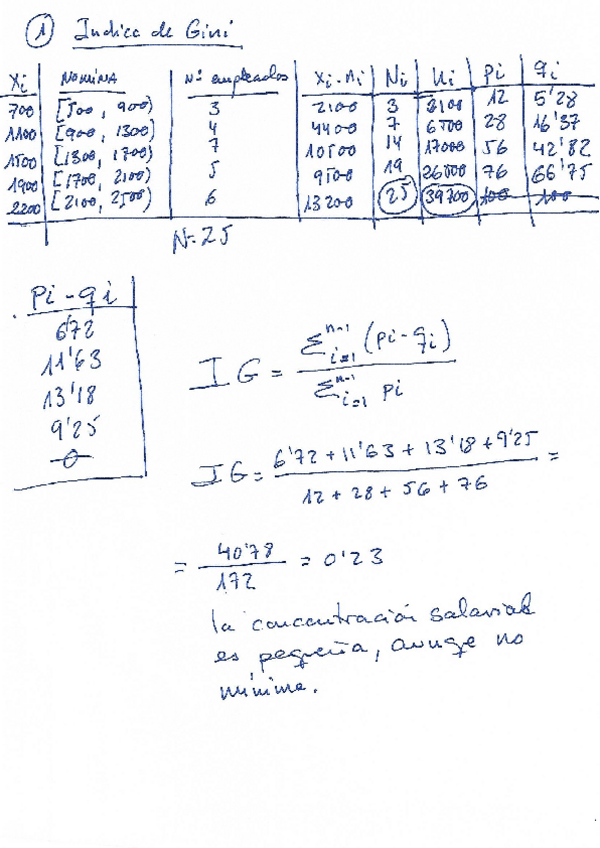 ① Indice de Gini
Xi NOMINA Nº empleados Xi·ni Ni Ui Pi qi
700 [500, 900) 3 2100 3 2100 12 5'28
1100 [900, 1300) 4 4400 7 6500 28 16'37
1500 [1300, 1700) 7 10500 14 17000 56 42'82
1900 [1700, 2100) 5 9500 19 26500 76 66'75
2200 [2100, 2500) 6 13200 25 39700 100 100
N=25
Pi - qi
6'72
11'63
13'18
9'25
0
IG = Σ i=1 n-1 (pi - qi) / Σ i=1 n-1 pi
IG = 6'72 + 11'63 + 13'18 + 9'25 / 12 + 28 + 56 + 76 =
= 40'78 / 172 = 0'23
la concentración salarial
es pequeña, aunqe no
mínima.